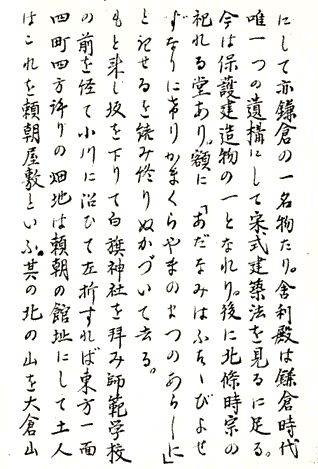 にして亦鎌倉の一名物たり。舎利殿は鎌倉時代
唯一つの遺構にして宋式建築法を見るに足る。
今は保護建造物の一となれり。後に北條時宗の
祀れる堂あり。額に「あだなみはふたゝびよせ
ずなりに希りかまくらやまのまつのあらしに」
と記せるを読み終りぬかづいて去る。
もと来し坂を下りて白旗神社を拜み師範学校
の前を経て小川に沿ひて左折すれば東方一面
四町四方許りの畑地は頼朝の館址にして土人
はこれを頼朝屋敷といふ。其の北の山を大倉山